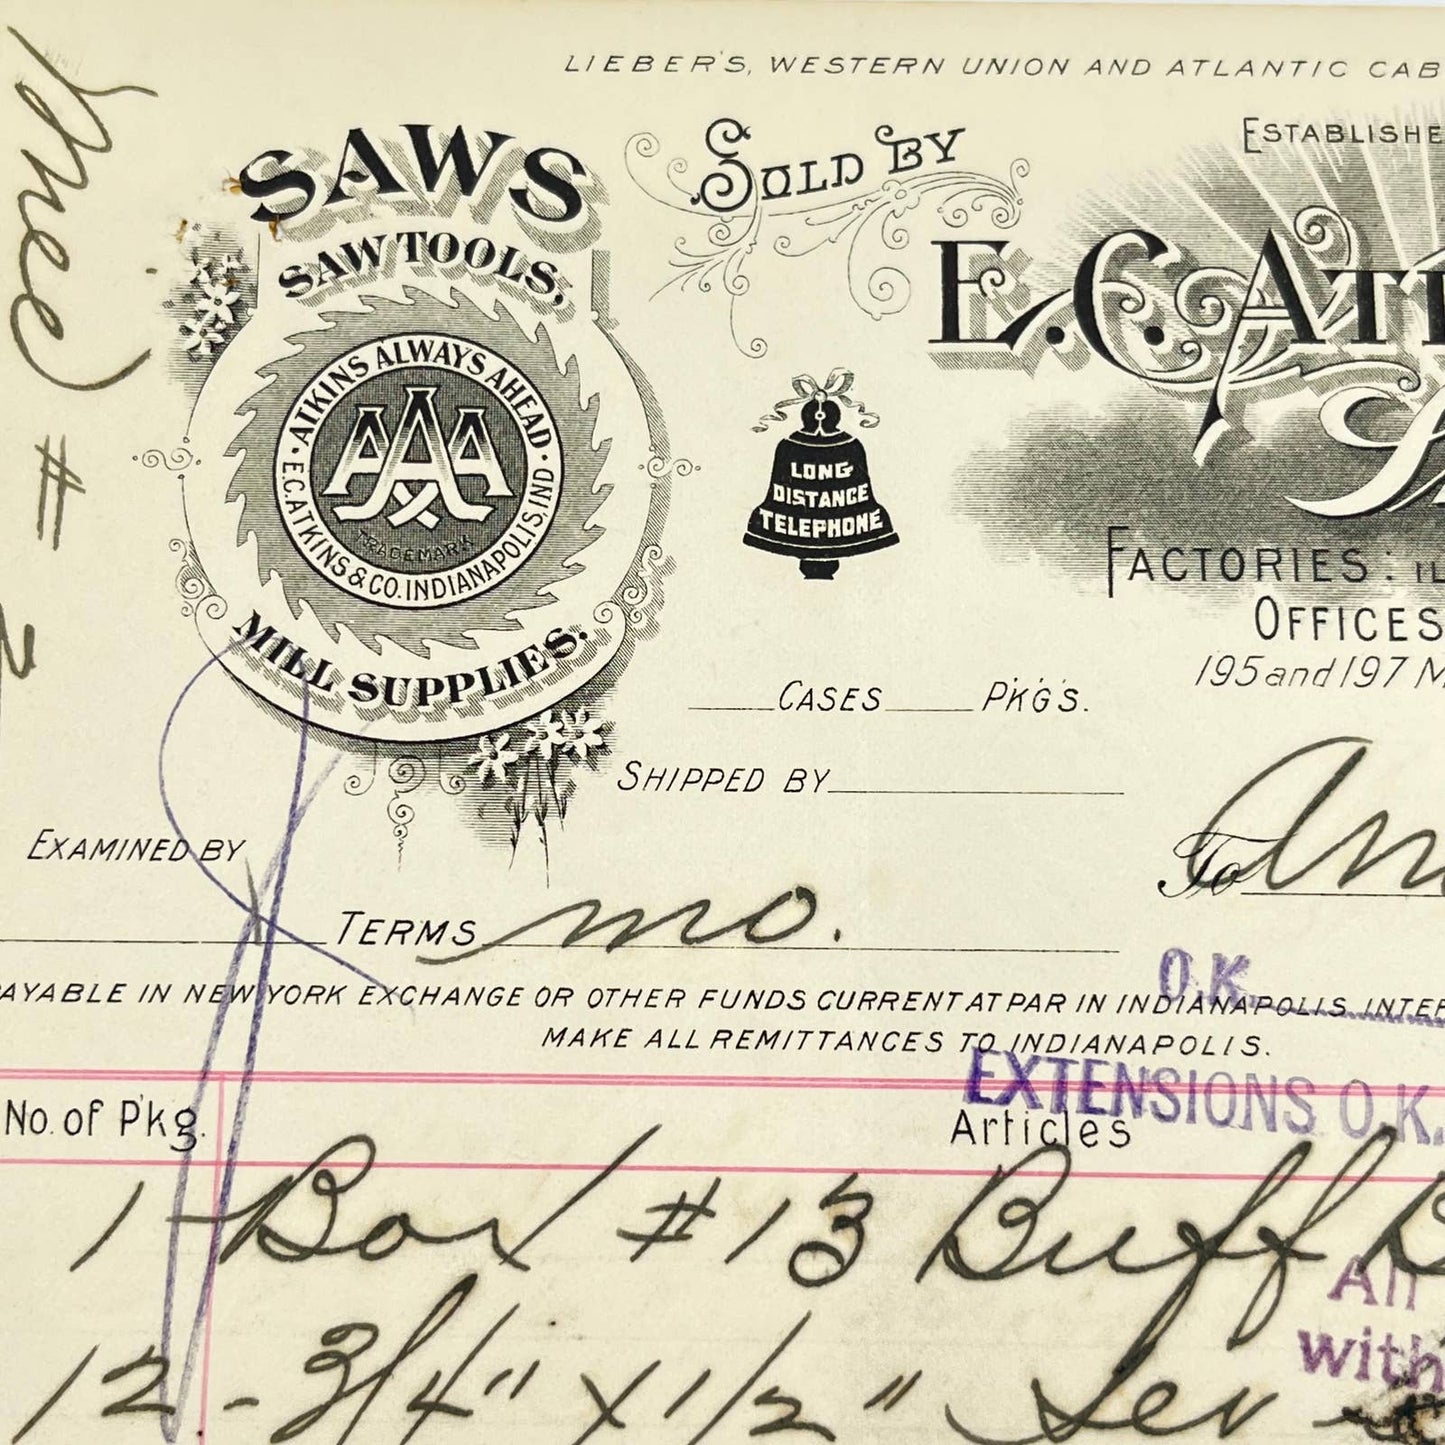 LIEBER'S, WESTERN UNION AND ATLANTIC CAB
SAWS
SAW TOOLS,
ATKINS ALWAYS AHEAD
AAA
TRADEMARK
E.C. ATKINS & CO. INDIANAPOLIS, IND
MILL SUPPLIES.
SOLD BY
ESTABLISHE
E.C. AT
LONG
DISTANCE
TELEPHONE
FACTORIES:
OFFICES
195 and 197 M
CASES P'K'G'S.
SHIPPED BY
EXAMINED BY
To
TERMS mo.
O.K.
PAYABLE IN NEW YORK EXCHANGE OR OTHER FUNDS CURRENT AT PAR IN INDIANAPOLIS. INTER
MAKE ALL REMITTANCES TO INDIANAPOLIS.
EXTENSIONS O.K.
No. of P'kg. Articles
1 - Box #13 Buff B
All
with
12 - 3/4" x 1/2"